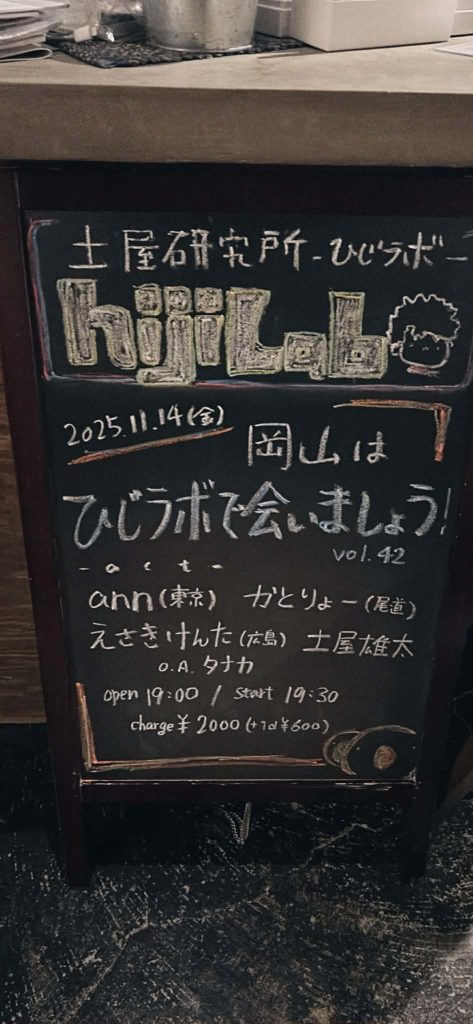 土屋研究所-ひじラボ-
hijiLab
2025.11.14(金)
岡山は
ひじラボで会いましょう!
vol.42
-act-
ann(東京) かとりょー(尾道)
えさきけんた(広島) 土屋雄太
O.A. タナカ
open 19:00 / start 19:30
charge¥2000(+1d¥600)